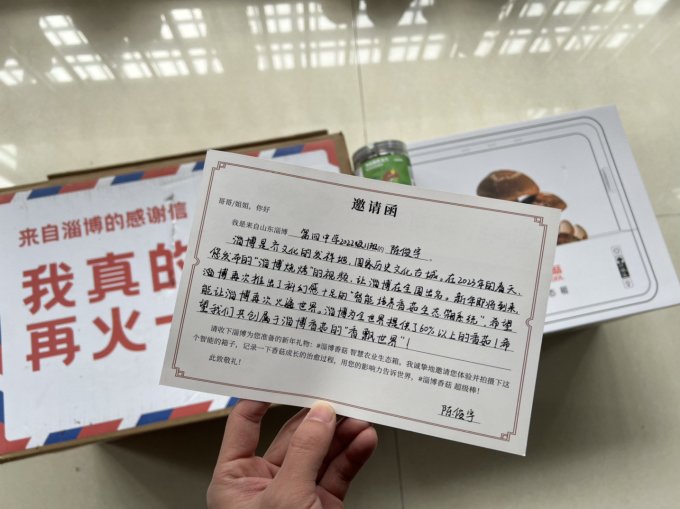 来自淄博的感谢信
我真的
再火一
邀请函
哥哥/姐姐,你好
我是来自山东淄博 第四中学2022级11班的 陈俊宇.
淄博是齐文化的发祥地,国家历史文化名城。在2023年的春天,
您发布的“淄博烧烤”的视频,让淄博在全国出名。新年即将到来,
淄博再次推出了科幻感十足的“智能培养香菇生态箱系统”,希望
能让淄博再次火遍世界。淄博为全世界提供了60%以上的香菇!希
望我们共创属于淄博香菇的“香飘世界”!
请收下淄博为您准备的新年礼物:#淄博香菇 智慧农业生态箱。我诚挚地邀请您体验并拍摄下这
个智能的箱子,记录一下香菇成长的治愈过程,用您的影响力告诉世界,#淄博香菇 超级棒!
此致敬礼!
陈俊宇
态箱